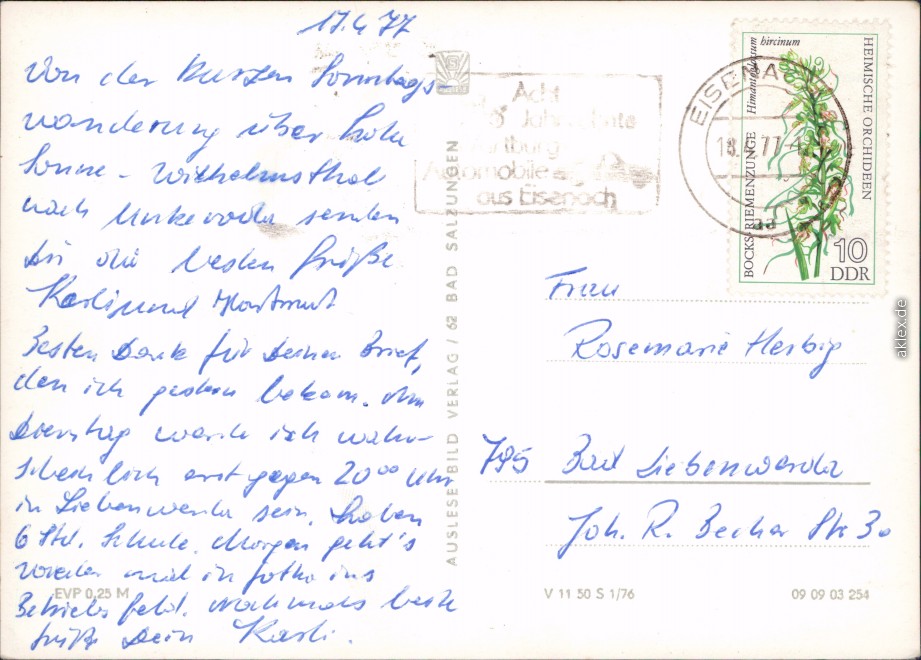 17.4.77
Von der kurzen Sonntags-
wanderung über hohe
Sonne - Wilhelmsthal
nach Unkeroda senden
Dir die besten Grüße
Karli und Hartmut
Besten Dank für Deinen Brief,
den ich gestern bekam. Am
Dienstag werde ich wahr-
scheinlich erst gegen 20⁰⁰ Uhr
in Liebenwerda sein, haben
6 Std. Schule. Morgen geht's
wieder mit in Gotha ins
Betriebsfeld. Nochmals beste
Grüße Dein Karli.
EVP 0,25 M
AUSLESE-BILD VERLAG / 62 BAD SALZUNGEN
Acht
Jahrzehnte
Wartburg
Automobile
aus Eisenach
EISENA
18. .77
aa
BOCKS-RIEMENZUNGE Himantoglossum hircinum
HEIMISCHE ORCHIDEEN
10
DDR
Frau
Rosemarie Herbig
795 Bad Liebenwerda
Joh. R. Becher Str. 30
V 11 50 S 1/76
09 09 03 254
aklex.de